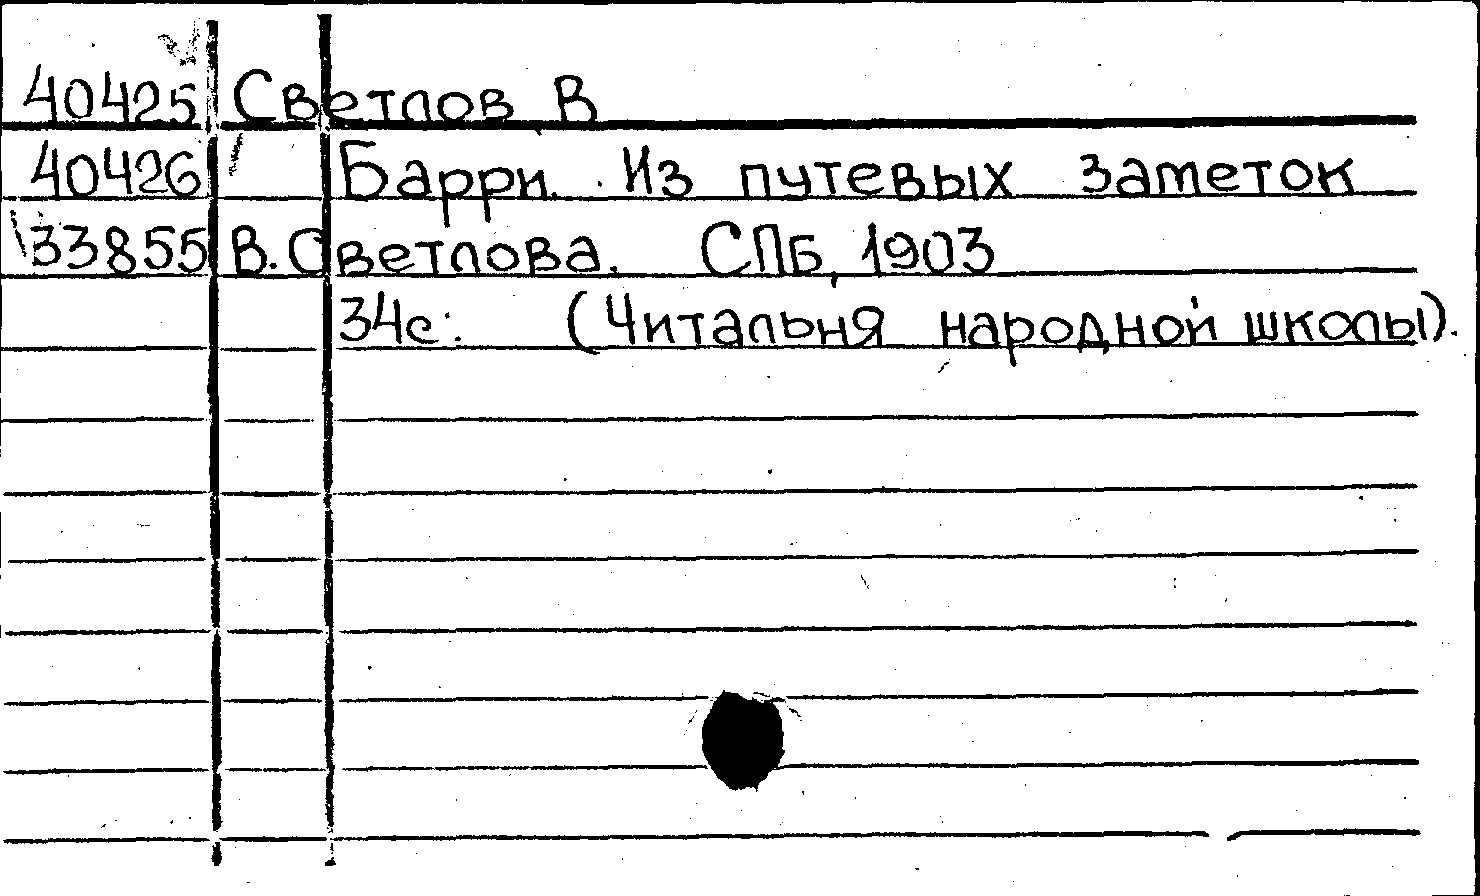 40425 Светлов В
40426 Барри. Из путевых заметок
33855 В. Светлова. СПБ, 1903
34с. (Читальня народной школы).